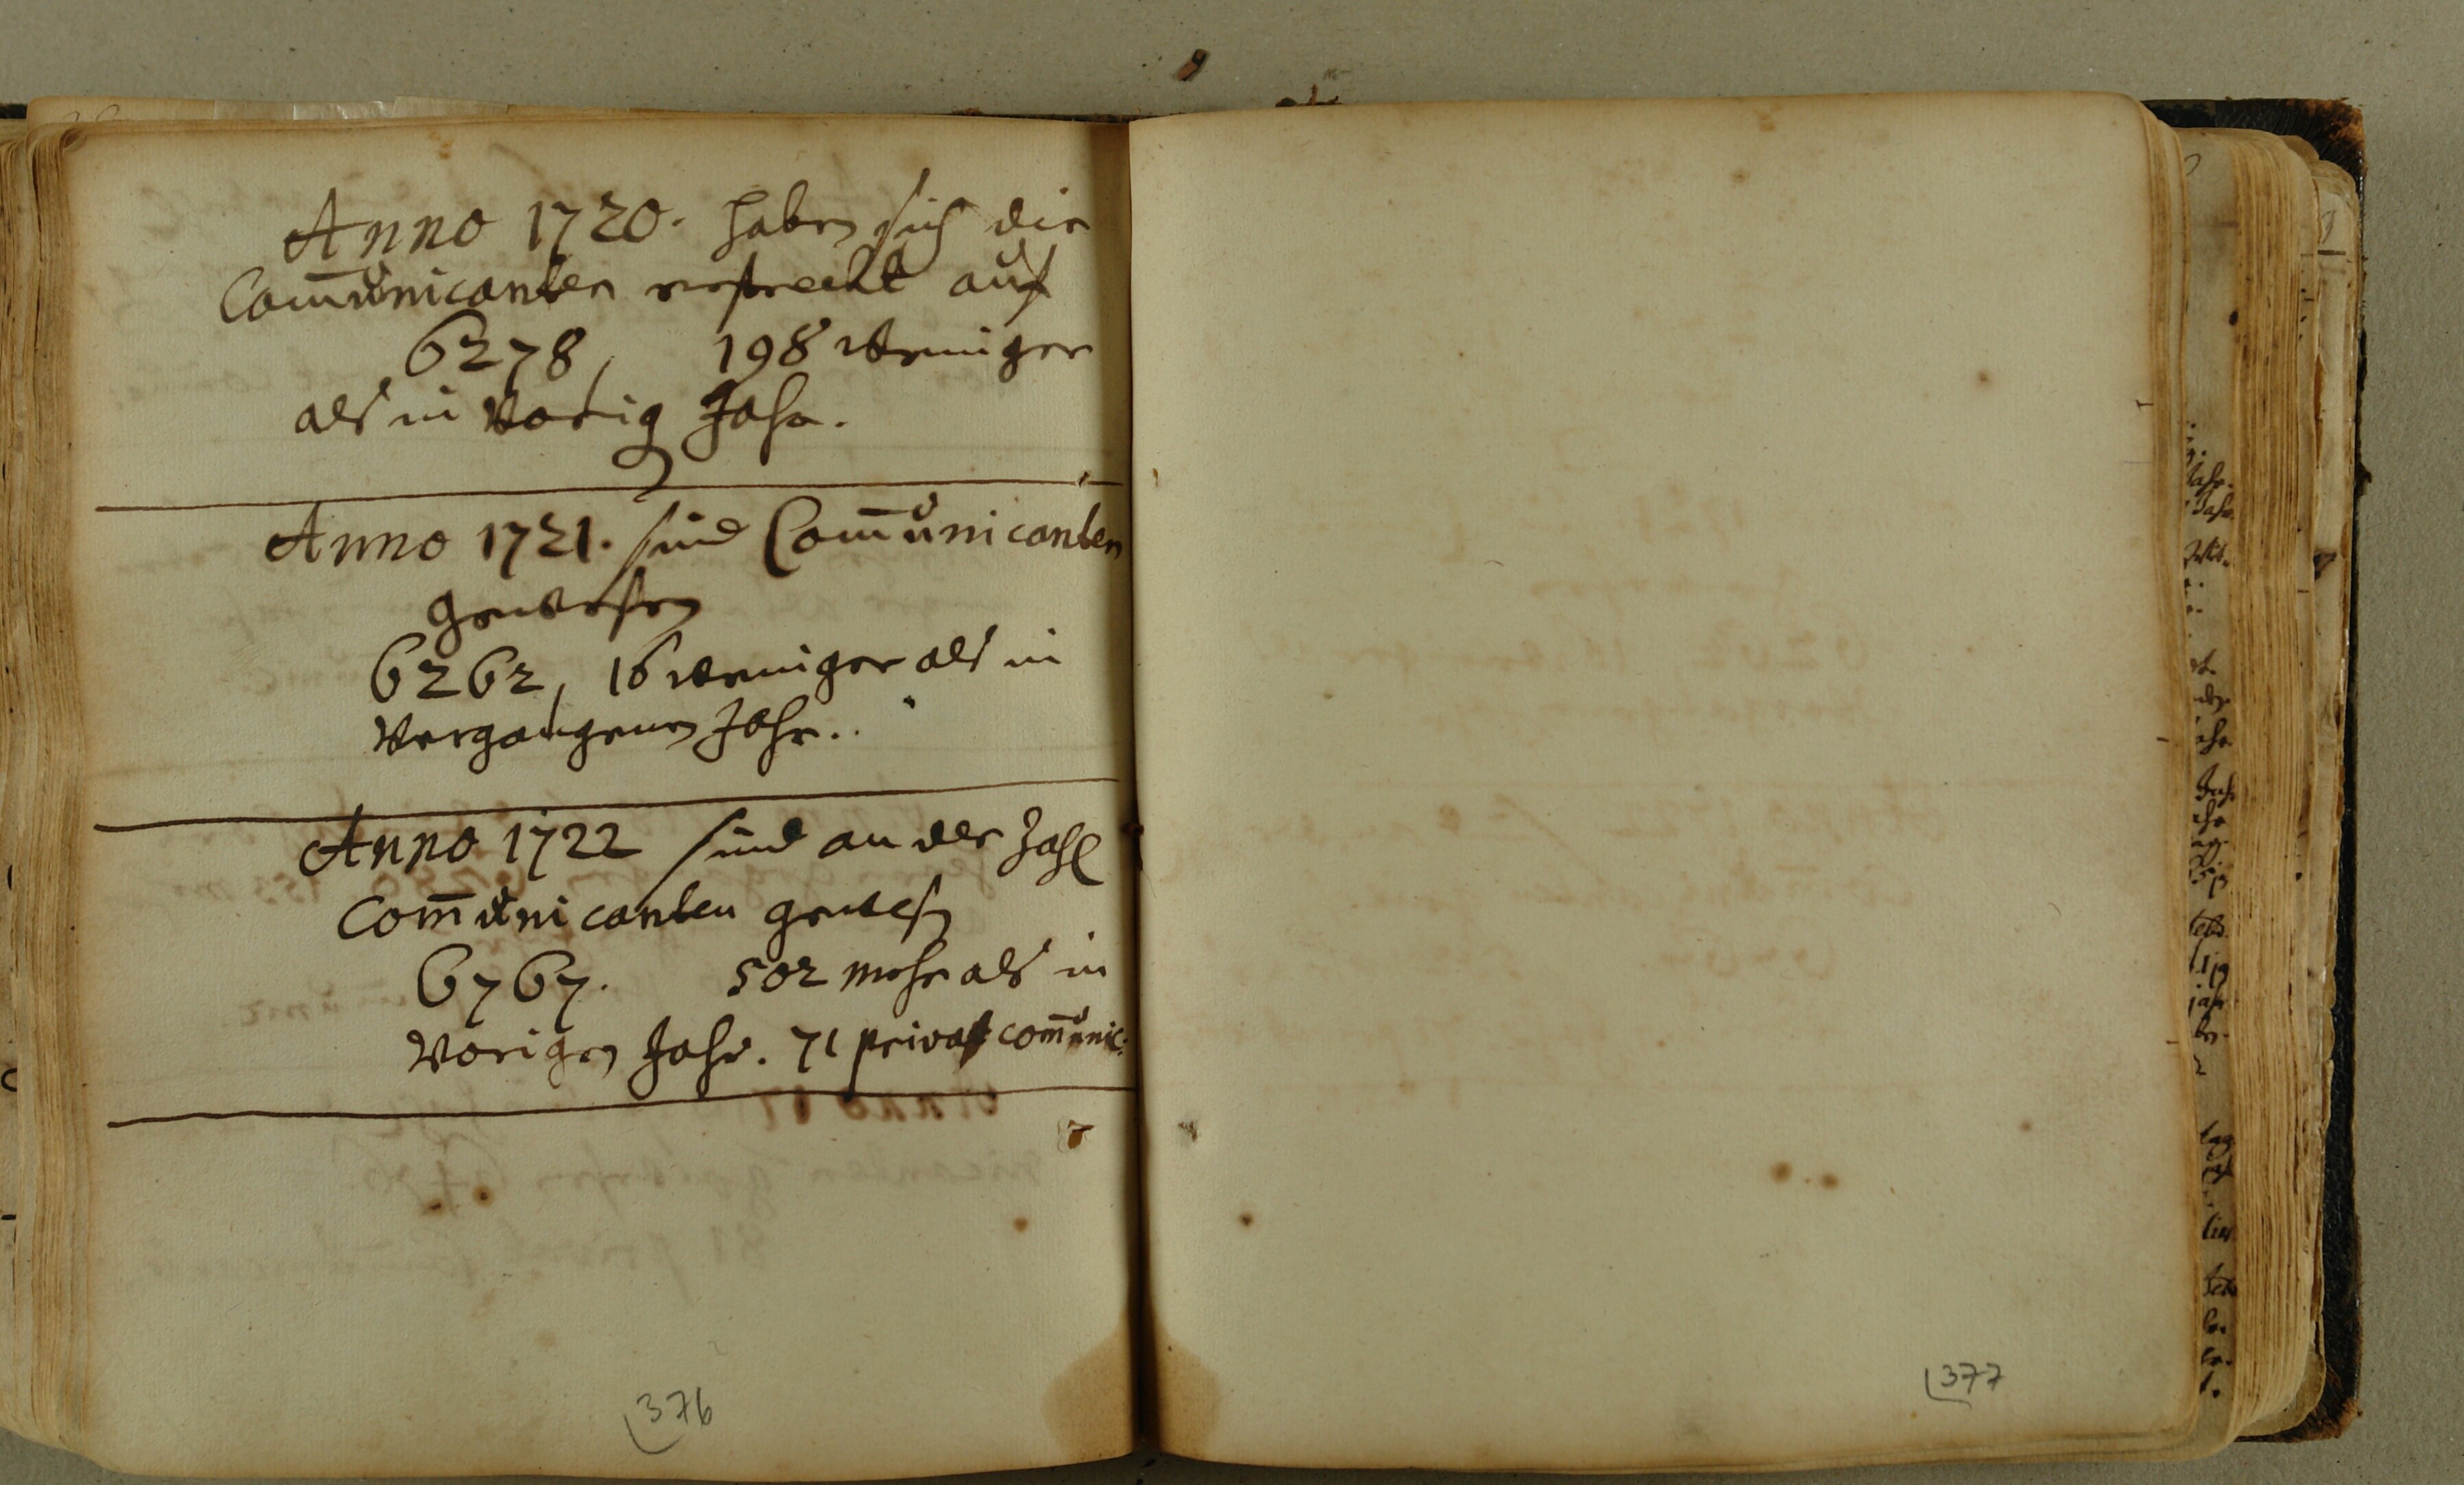 Anno 1720. haben sich die
Com̄unicanten erstreckt auf
6278, 198 weniger
als in vorig Jahr.
Anno 1721. sind Com̄unicanten
gewesen
6262, 16 weniger als in
vergangenen Jahr..
Anno 1722 sind an der Zahl
Com̄unicanten gewesen
6767. 502 mehr als in
vorigen Jahr. 71 privat com̄unic:
376
377